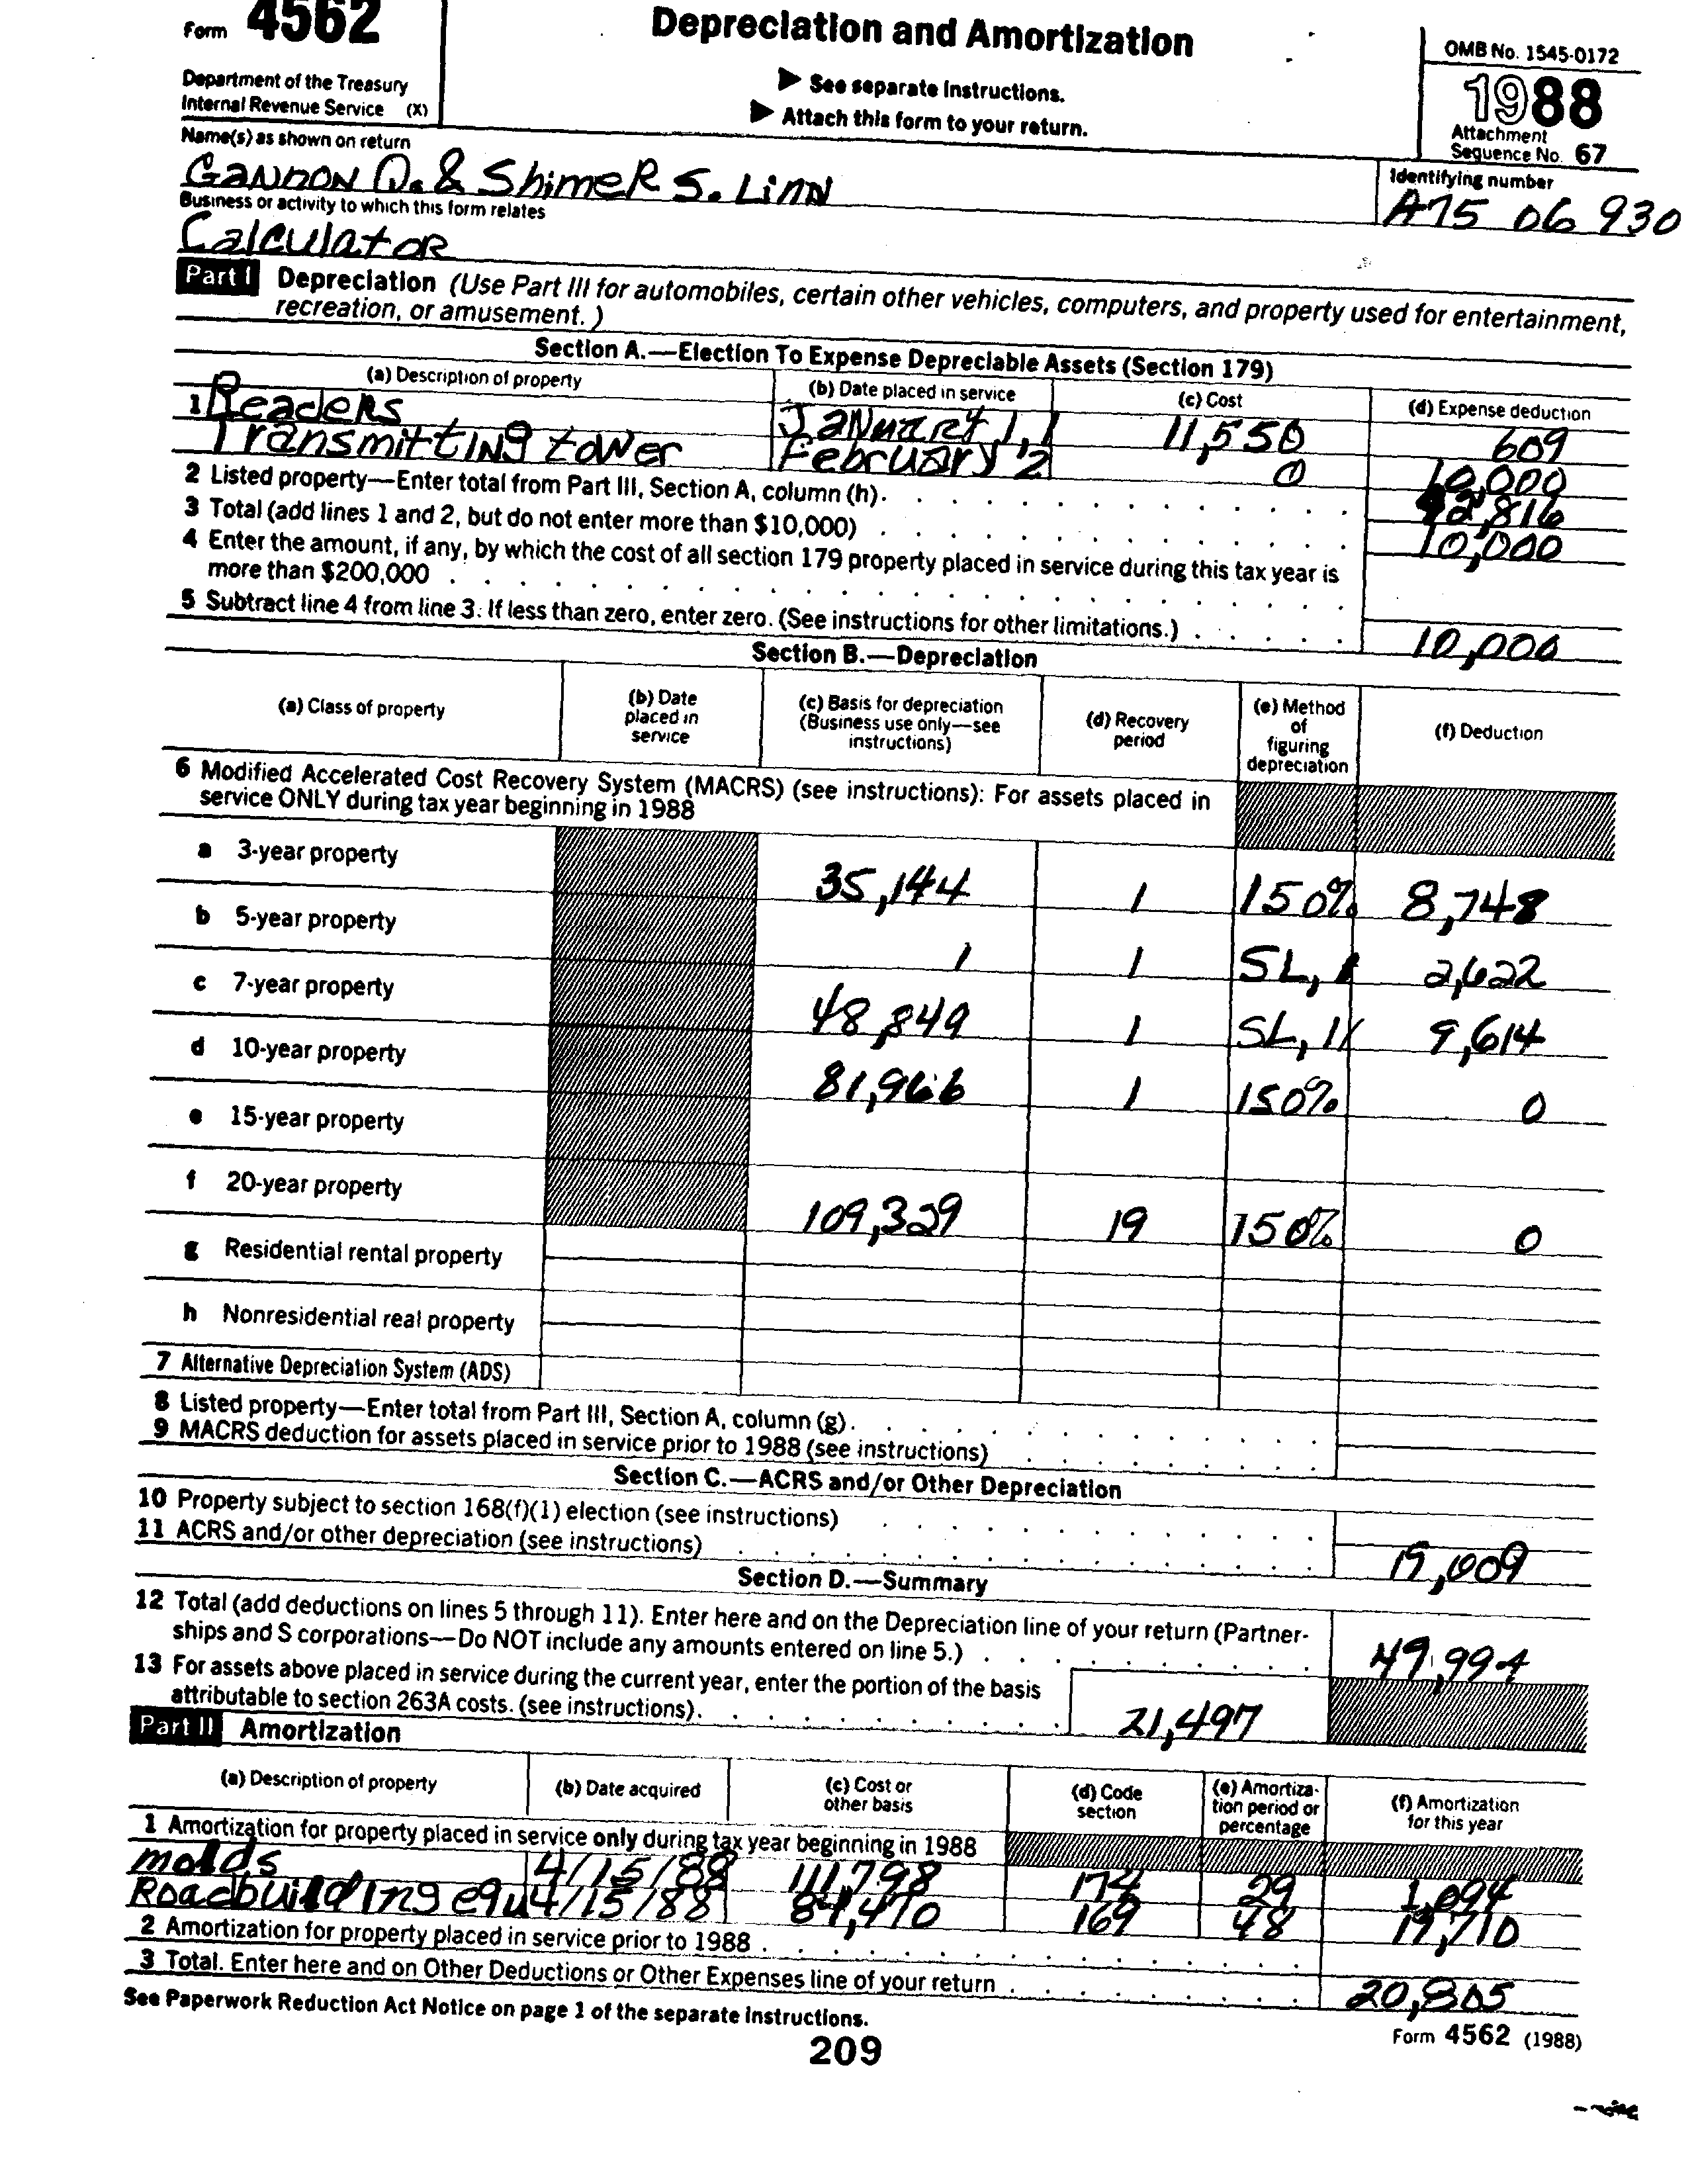 Form 4562
Depreciation and Amortization
OMB No. 1545-0172
Department of the Treasury
Internal Revenue Service (X)
▶ See separate instructions.
▶ Attach this form to your return.
1988
Attachment
Sequence No. 67
Name(s) as shown on return
GANNON Q. & ShimeR S. LinN
Identifying number
A75 06 930
Business or activity to which this form relates
CalculatoR
Part I Depreciation (Use Part III for automobiles, certain other vehicles, computers, and property used for entertainment,
recreation, or amusement.)
Section A.—Election To Expense Depreciable Assets (Section 179)
(a) Description of property (b) Date placed in service (c) Cost (d) Expense deduction
1 Readers JaNuarY 1, 1 11,550 609
Transmitting tower February 2 0 10,000
2 Listed property—Enter total from Part III, Section A, column (h). 2,816
3 Total (add lines 1 and 2, but do not enter more than $10,000) 10,000
4 Enter the amount, if any, by which the cost of all section 179 property placed in service during this tax year is
more than $200,000
5 Subtract line 4 from line 3. If less than zero, enter zero. (See instructions for other limitations.) 10,000
Section B.—Depreciation
(a) Class of property
(b) Date
placed in
service
(c) Basis for depreciation
(Business use only—see
instructions)
(d) Recovery
period
(e) Method
of
figuring
depreciation
(f) Deduction
6 Modified Accelerated Cost Recovery System (MACRS) (see instructions): For assets placed in
service ONLY during tax year beginning in 1988
a 3-year property 35,144 1 150% 8,748
b 5-year property 1 1 SL, 2,622
c 7-year property 48,849 1 SL, 9,614
d 10-year property 81,966 1 150% 0
e 15-year property
f 20-year property 109,329 19 150% 0
g Residential rental property
h Nonresidential real property
7 Alternative Depreciation System (ADS)
8 Listed property—Enter total from Part III, Section A, column (g).
9 MACRS deduction for assets placed in service prior to 1988 (see instructions)
Section C.—ACRS and/or Other Depreciation
10 Property subject to section 168(f)(1) election (see instructions)
11 ACRS and/or other depreciation (see instructions) 19,009
Section D.—Summary
12 Total (add deductions on lines 5 through 11). Enter here and on the Depreciation line of your return (Partner-
ships and S corporations—Do NOT include any amounts entered on line 5.) 49,994
13 For assets above placed in service during the current year, enter the portion of the basis
attributable to section 263A costs. (see instructions). 21,497
Part II Amortization
(a) Description of property
(b) Date acquired
(c) Cost or
other basis
(d) Code
section
(e) Amortiza-
tion period or
percentage
(f) Amortization
for this year
1 Amortization for property placed in service only during tax year beginning in 1988
molds 4/15/88 111,798 174 29 1,094
Roadbuilding equ 4/15/88 84,470 169 48 19,710
2 Amortization for property placed in service prior to 1988
3 Total. Enter here and on Other Deductions or Other Expenses line of your return 20,805
See Paperwork Reduction Act Notice on page 1 of the separate instructions.
Form 4562 (1988)
209